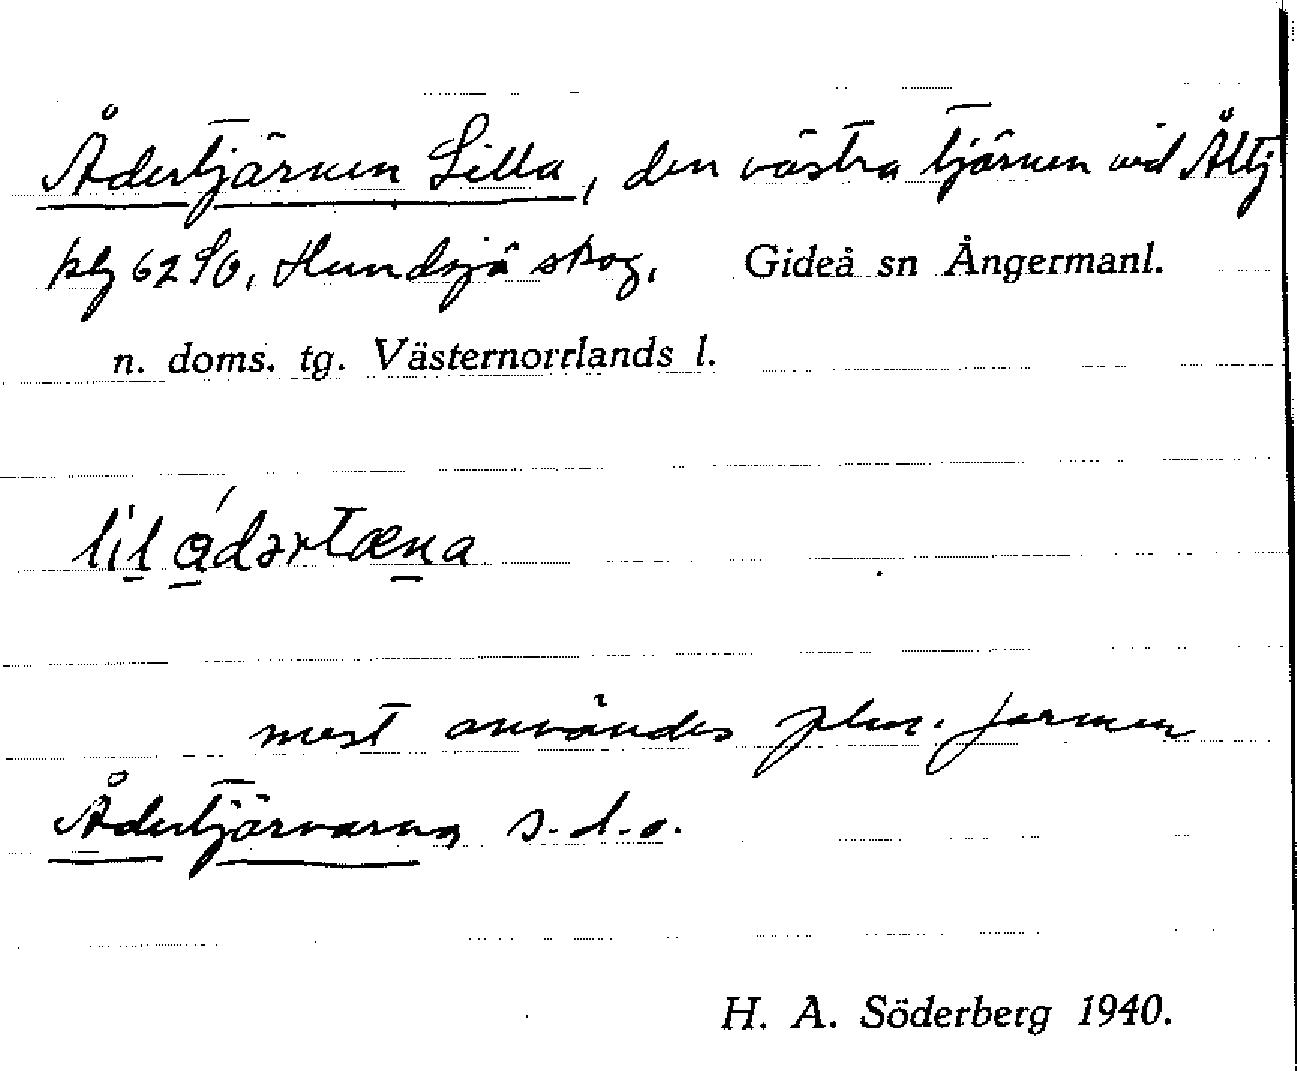 Ådertjärnen Lilla, den västra tjärnen vid Åltj
på 62 SO, Hundsjö skog, Gideå sn Ångermanl.
n. doms. tg. Västernorrlands l.
mest användes plur. formen
Ådertjärnarna s.d.o.
H. A. Söderberg 1940.